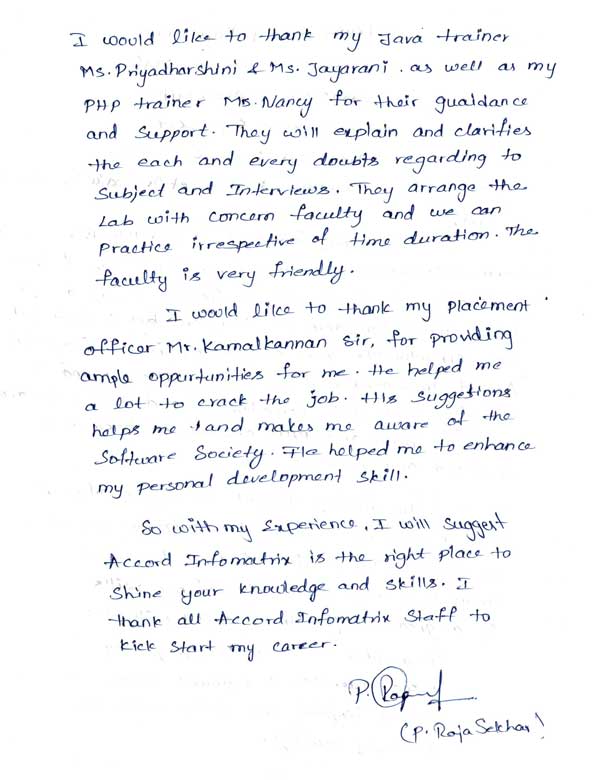 I would like to thank my Java trainer
Ms. Priyadharshini & Ms. Jayarani. as well as my
PHP trainer Ms. Nancy for their guaidance
and Support. They will explain and clarifies
the each and every doubts regarding to
Subject and Interviews. They arrange the
Lab with concern faculty and we can
Practice irrespective of time duration. The
faculty is very friendly.
I would like to thank my Placement
officer Mr. Kamalkannan Sir, for providing
ample oppurtunities for me. He helped me
a lot to crack the job. His Suggetions
helps me and makes me aware of the
Software Society. He helped me to enhance
my personal development Skill.
So with my Experience, I will Suggest
Accord Infomatrix is the right place to
Shine your knowledge and Skills. I
thank all Accord Infomatrix Staff to
Kick Start my career.
(P. Raja Sekhar)